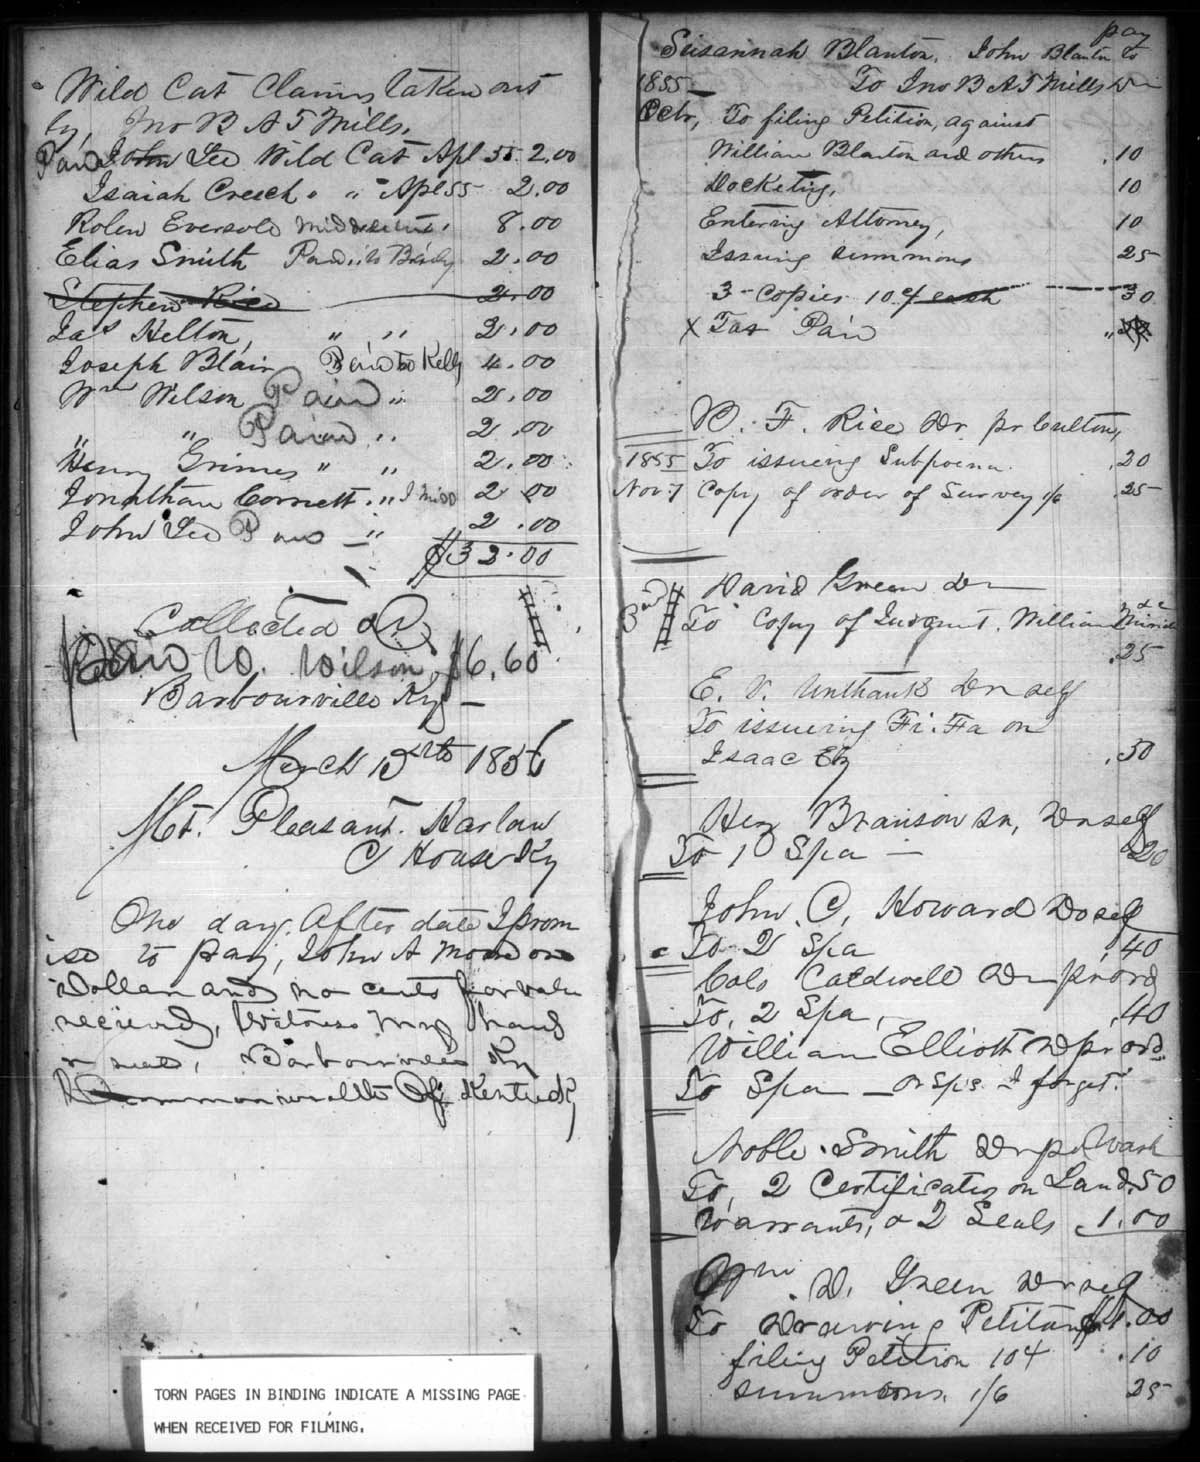 Wild Cat Claims taken out
by, Jno B A T Mills.
Paid John Lee Wild Cat Apl 55 2.00
Isaiah Creech " " Apl 55 2.00
Rolen Eversole 8.00
Elias Smith Paid to 2.00
Stephen Rice 2.00
Jas Helton, " " 2.00
Joseph Blair Paid to Kelly 4.00
Wm Wilson Paid " 2.00
" " Paid " 2.00
Henry Grimes " " 2.00
Jonathan Cornett " 2.00
John Lee Paid " 2.00
$32.00
Collected
W. Wilson, $6.60
Barbourville Ky
March 1856
Mt. Pleasant. Harlan
C House Ky
One day After date I prom
ise to pay, John A Moore one
Dollar and no cents for value
recieved, Witness my hand
& seal, Barbourville Ky
Commonwealth Of Kentucky
TORN PAGES IN BINDING INDICATE A MISSING PAGE
WHEN RECEIVED FOR FILMING.
pay
Susannah Blanton, John Blanton to
1855 To Jno B A T Mills Dr
Octr, To filing Petition, against
William Blanton and others .10
Docketing, 10
Entering Attorney, 10
Issuing summons 25
3 Copies 10 c each 30
x Tax Paid
W. F. Rice Dr. pr Culton,
1855 To issueing Subpoena .20
Nov. 7 Copy of order of Survey 1/6 .25
David Green Dr
Paid To Copy of Judgmt. William
.25
E. V. Unthank Dr self
To issueing Fi. Fa on
Isaac .50
Hez Branson Sr, Dr self
To 1 Spa 20
John C, Howard Dr self
To 2 Spa .40
Calo Caldwell Dr pr ord
To, 2 Spa, .40
William Elliott Dr pr ord
To Spa — or Sps I forget.
Noble Smith Dr pr Wash
To, 2 Certificates on Land .50
Warrants, & 2 Seals 1.00
Wm D. Green Dr self
To Drawing Petition $1.00
filing Petition 104 .10
summons. 1/6 25